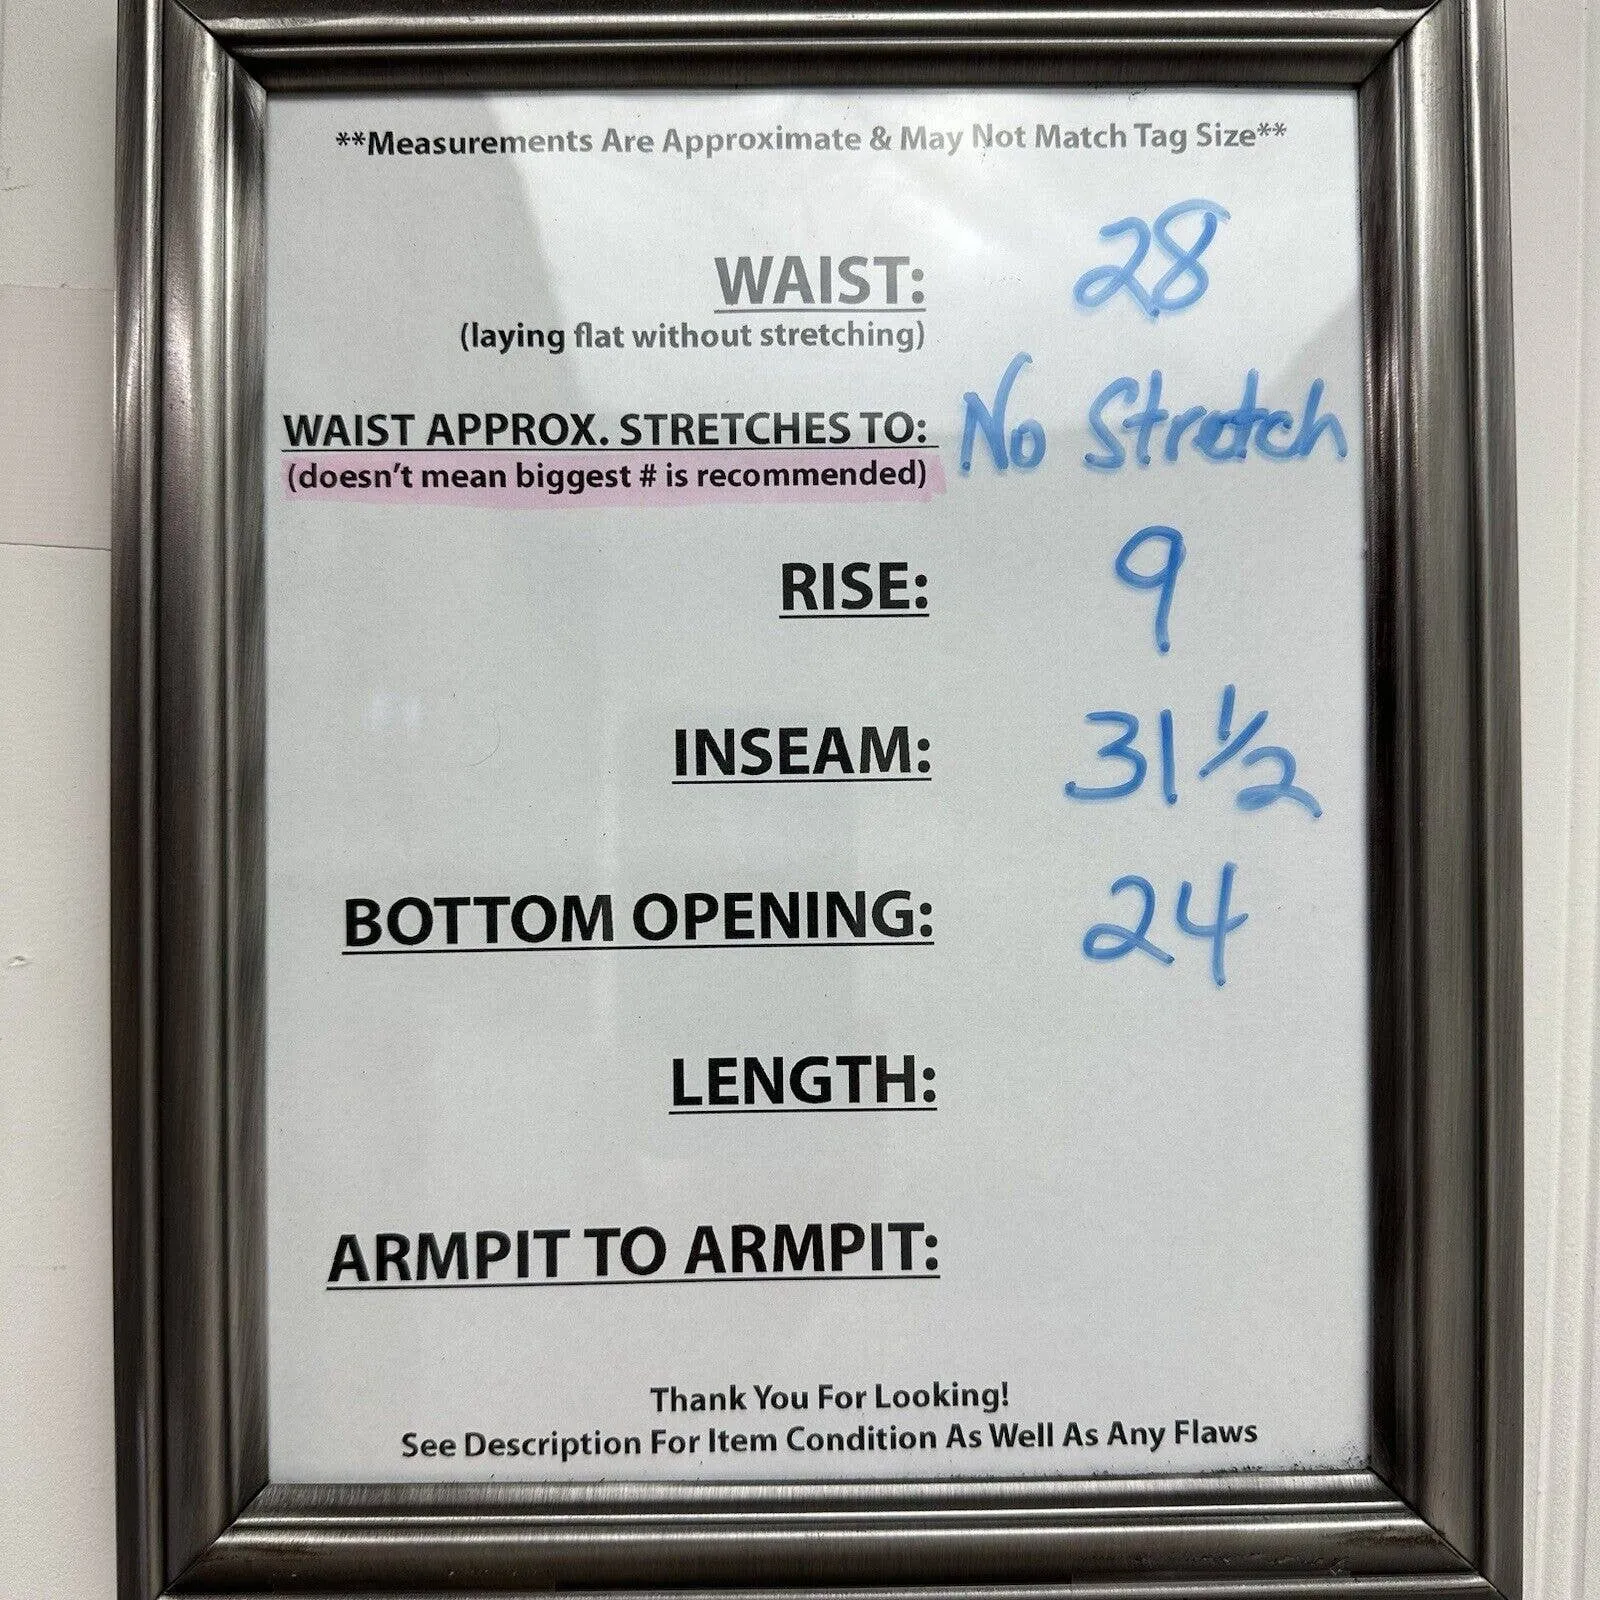 **Measurements Are Approximate & May Not Match Tag Size**
WAIST: 28
(laying flat without stretching)
WAIST APPROX. STRETCHES TO: No Stretch
(doesn't mean biggest # is recommended)
RISE: 9
INSEAM: 31 1/2
BOTTOM OPENING: 24
LENGTH:
ARMPIT TO ARMPIT:
Thank You For Looking!
See Description For Item Condition As Well As Any Flaws